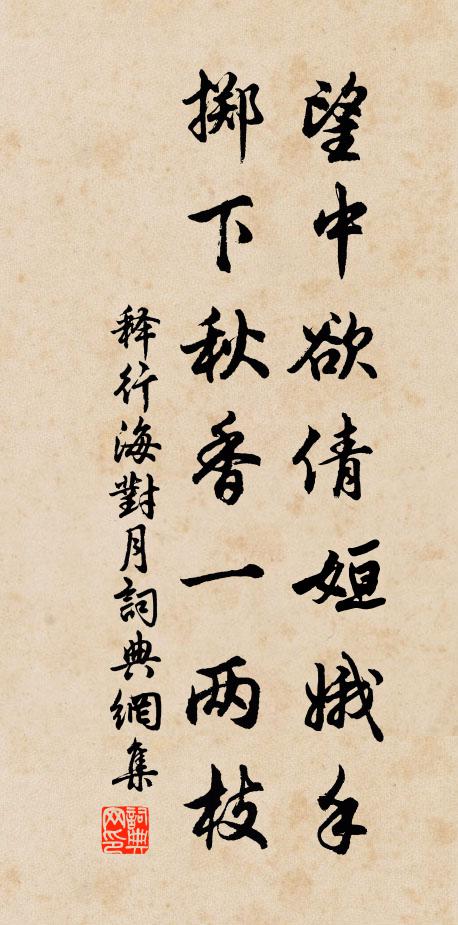 望中欲倩姮娥手
掷下秋香一两枝
释行海對月詞典網集
詞典网印